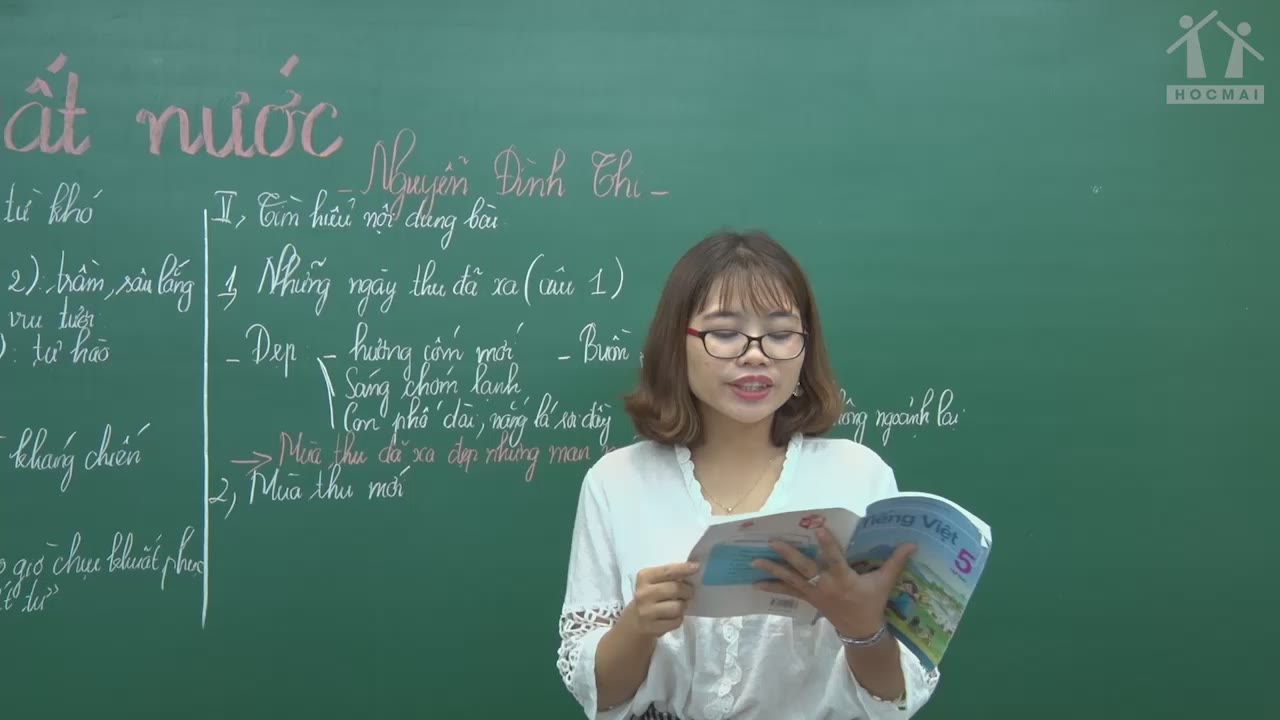 HOCMAI
ất nước
- Nguyễn Đình Thi -
từ khó
2): trầm, sâu lắng
vui tươi
): tự hào
kháng chiến
giờ chịu khuất phục
II, Tìm hiểu nội dung bài
1, Những ngày thu đã xa (câu 1)
- Đẹp - hương cốm mới - Buồn
Sáng chớm lạnh
Con phố dài, nắng lá rơi đầy ngoảnh lại
→ Mùa thu đã xa đẹp nhưng man
2, Mùa thu mới
Tiếng Việt
5